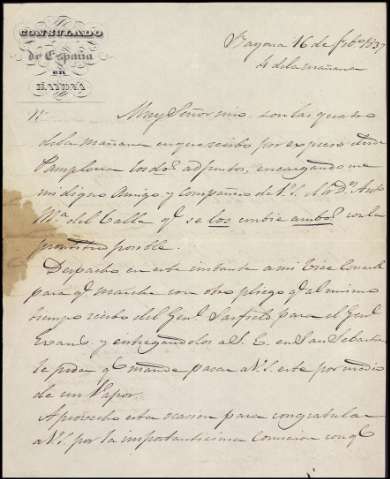 CONSULADO
de España
en
BAYONA
Bayona 16 de feb.o 1837
4 de la mañana
Muy Señor mio. son las quatro
de la mañana en que recibo por expreso desde
Pamplona los dos adjuntos, encargandome
mi digno Amigo y Compañero de V.S. Dn Anto
Ma. del Valle qe se los embie ambos con la
prontitud posible.
Despacho en este instante a mi Vice Consul
para qe marche con otro pliego qe al mismo
tiempo recibo del Genl Sarsfield para el Genl
Evans, y entregandolos a S.E. en San Sebastian
le pida qe mande pasar a V.S. este por medio
de un Vapor.
Aprovecho esta ocasion para congratular
a V.S. por la importantisima Comision con qe